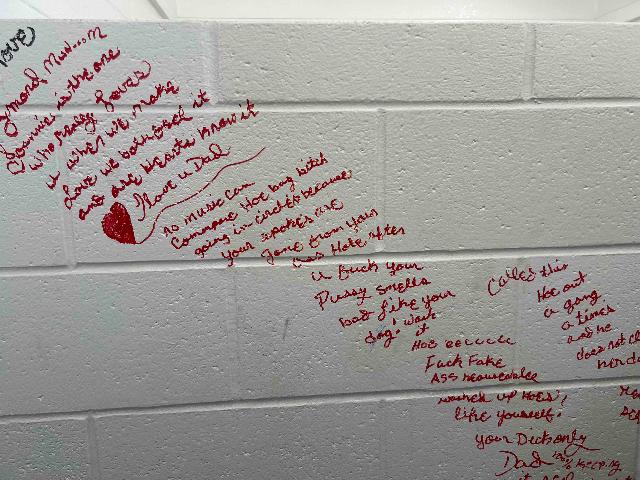 Love
is the one
who really Loves
u when we make
Love we both need it
and are Hearts know it
I love u Dad
no music can
Compare Hoe bag bitch
going in circles because
your spokes are
gone from your
Hole after
u Fuck your
Pussy smells
bad like your
dog! wash
it
Hoe eeeeeee
Fuck Fake
Ass
washed up Hoes!
like yourself.
your Dick only
Dad 100% Keeping
Called this
Hoe out
a gang
a times
and he
does not